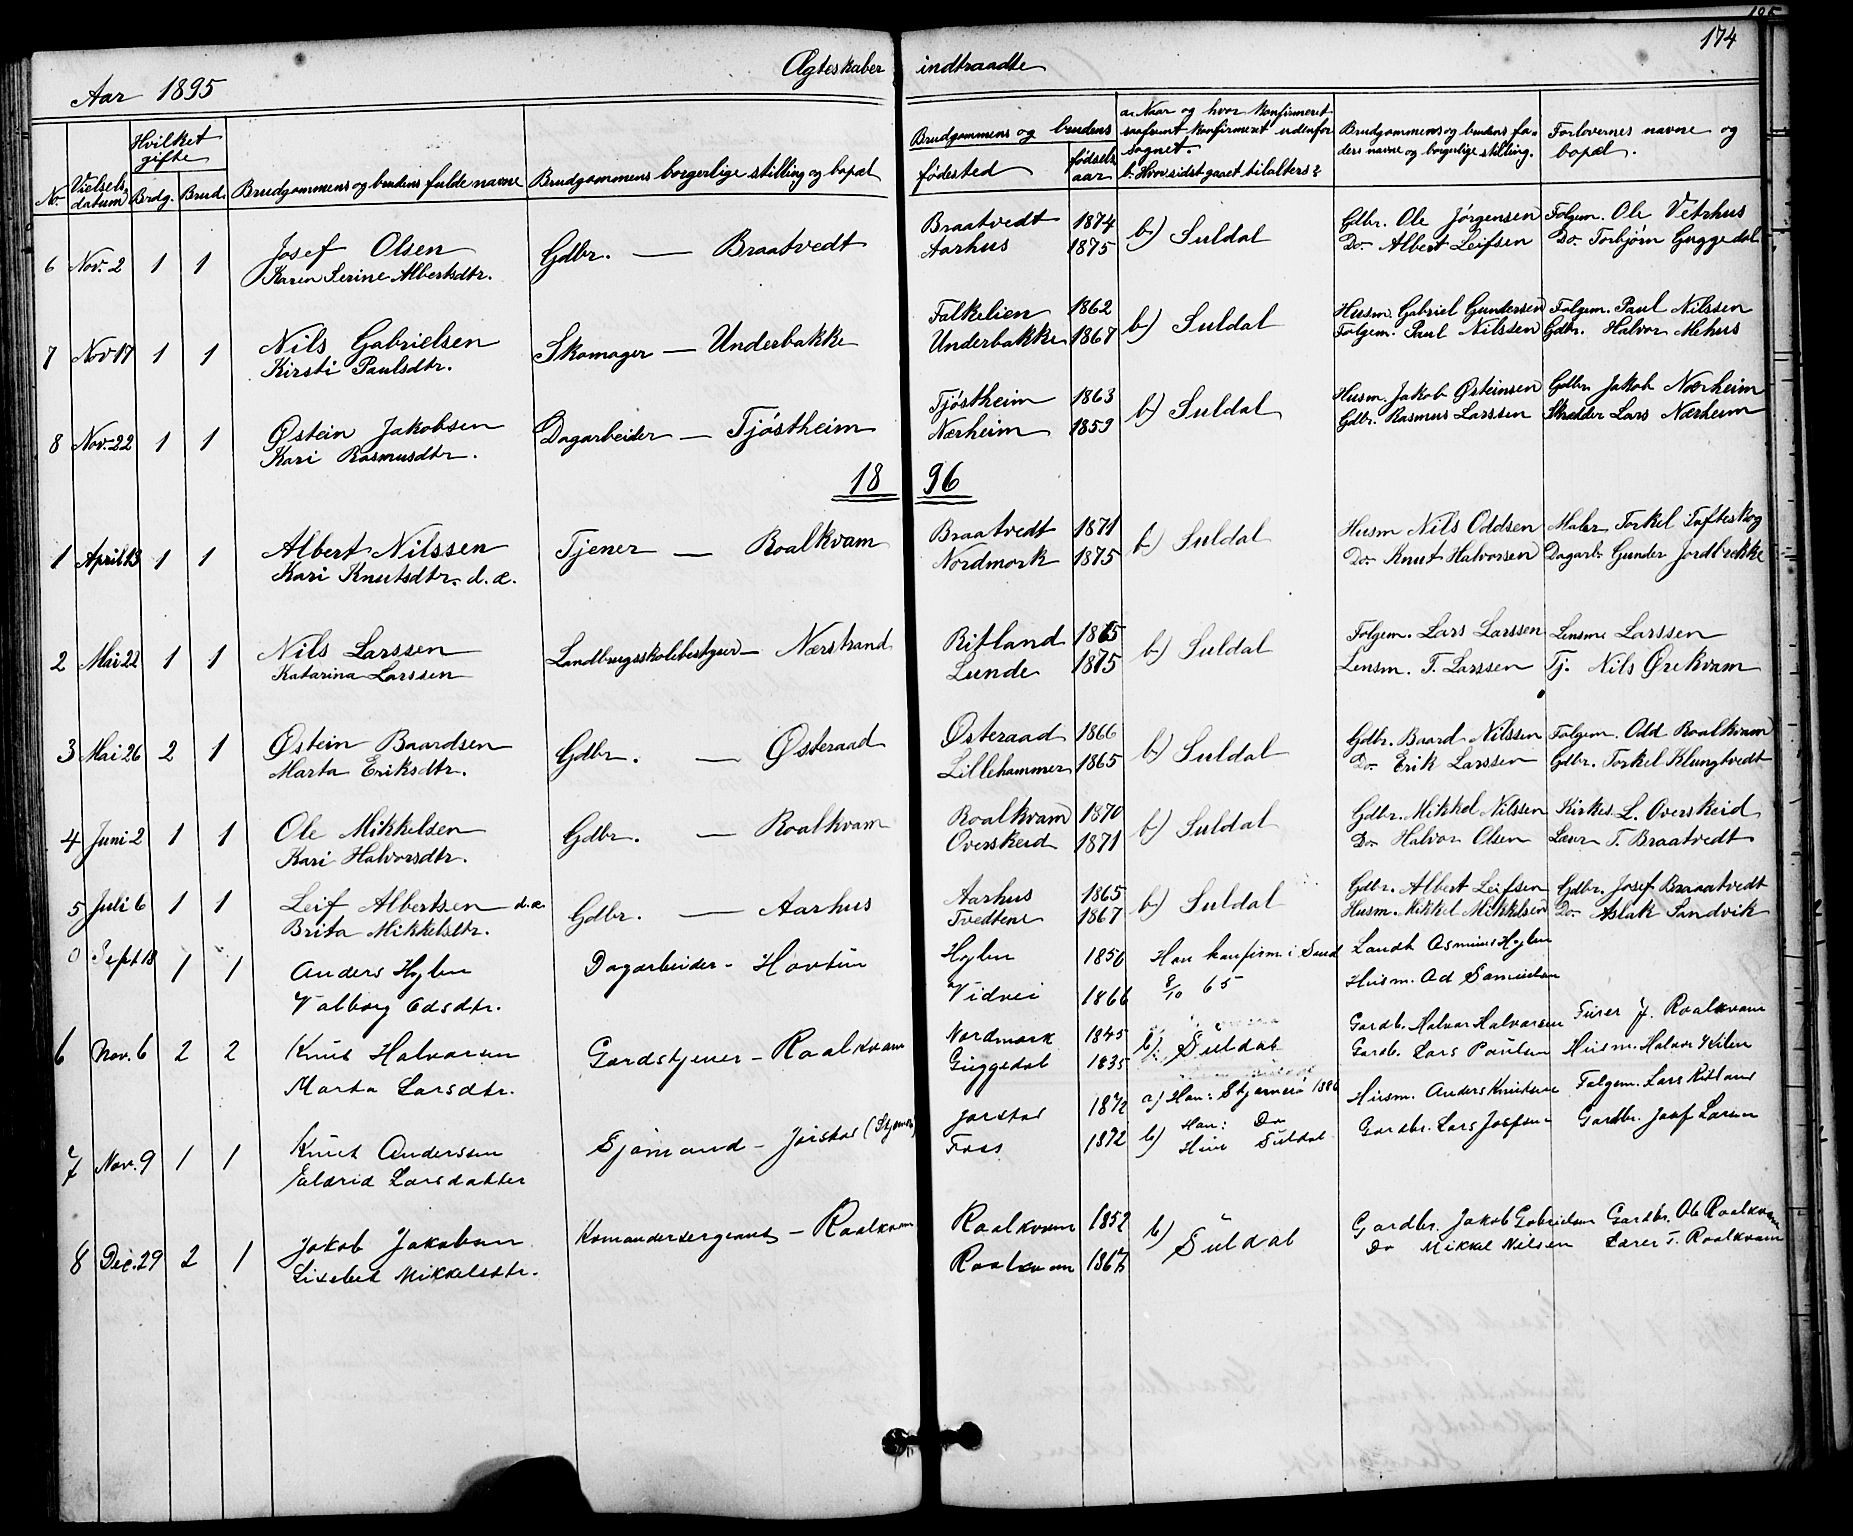 174
Aar 1895 Ægteskaber indtraadte
No. Vielsels datum Hvilket gifte Brdg. Brud. Brudgommens og brudens fulde navne Brudgommens borgerlige stilling og bopæl Brudgommens og brudens fødested fødsels aar a. Naar og hvor konfirmeret saafremt konfirmeret udenfor sognet. b. Hvor sidst gaaet til alters? Brudgommens og brudens faders navne og borgerlige stilling. Forlovernes navne og bopæl.
6 Nov. 2 1 1 Josef Olsen Gdbr. — Braatvedt Braatvedt 1874 b) Suldal Gdbr. Ole Jørgensen Folgem. Ole Vetrhus
Karen Serine Albertsdtr. Aarhus 1875 Do. Albert Leifsen Do. Torbjörn Guggedal
7 Nov 17 1 1 Nils Gabrielsen Skomager — Underbakke Falkelien 1862 b) Suldal Husm. Gabriel Gundersen Folgem. Paul Nilssen
Kirsti Paulsdtr. Underbakke 1867 Folgem. Paul Nilssen Gdbr. Halvor Mehus
8 Nov. 22 1 1 Østein Jakobsen Dagarbeider — Tjøstheim Tjøstheim 1863 b) Suldal Husm. Jakob Østeinsen Gdbr. Jakob Nærheim
Kari Rasmusdtr. Nærheim 1859 Gdbr. Rasmus Larssen Skrædder Lars Nærheim
18 96
1 April 13 1 1 Albert Nilssen Tjener — Roalkvam Braatvedt 1871 b) Suldal Husm Nils Oddsen Maler Torkel Tafteskog
Kari Knutsdtr. d. æ. Nordmork 1875 Do. Knut Halvorsen Dagarb. Gunder Jordbrekke
2 Mai 22 1 1 Nils Larssen Landbrugsskolebestyrer — Nærstrand Ritland 1865 b) Suldal Folgem. Lars Larssen Lensm. Larssen
Katarina Larssen Lunde 1875 Lensm. T. Larssen Tj. Nils Ørekvam
3 Mai 26 2 1 Østein Baardsen Gdbr. — Østeraad Østeraad 1866 b) Suldal Gdbr. Baard Nilssen Folgem. Odd Roalkvam
Marta Eriksdtr. Lillehammer 1865 Do. Erik Larssen Gdbr. Torkel Klungtvedt
4 Juni 2 1 1 Ole Mikkelsen Gdbr. — Roalkvam Roalkvam 1870 b) Suldal Gdbr. Mikkel Nilssen Kirkes. L. Overskeid
Kari Halvorsdtr. Overskeid 1871 Do. Halvor Olsen Lærer T. Braatvedt
5 Juli 6 1 1 Leif Albertsen d. æ. Gdbr. — Aarhus Aarhus 1865 b) Suldal Gdbr. Albert Leifsen Gdbr. Josef Braatvedt
Brita Mikkelsdtr. Tvedtene 1867 Husm. Mikkel Mikkelsen Do. Aslak Sandvik
0 Sept 18 1 1 Anders Hylen Dagarbeider - Havtun Hylen 1850 Han konfirm i Sand Landh Hylen
Valborg Odsdtr. Vidvei 1866 8/10 65 Husm. Od Samuelsen
6 Nov. 6 2 2 Knut Halvorsen Gardstjener - Roalkvam Nordmork 1845 b) Suldal Gardb. Halvor Halvorsen Furer J. Roalkvam
Marta Larsdtr. Guggedal 1835 Gardb. Lars Paulsen Husm. Halvor
7 Nov. 9 1 1 Knut Anderssen Sjømand - Jørstad Jørstad 1872 a) Han: Stjernerø 1886 Husm. Anders Knutsen Folgem. Lars Ritland
Eldrid Larsdatter Foss 1872 b) Han: Do Hun Suldal Gardbr. Lars Josefsen Gardbr. Josef Larsen
8 Dec. 29 2 1 Jakob Jakobsen Komandersergeant - Roalkvam Roalkvam 1852 b) Suldal Gardbr. Jakob Gabrielsen Gardbr. Ole Roalkvam
Lisebet Mikkelsdtr. Roalkvam 1867 Do Mikkel Nilsen Lærer T. Roalkvam